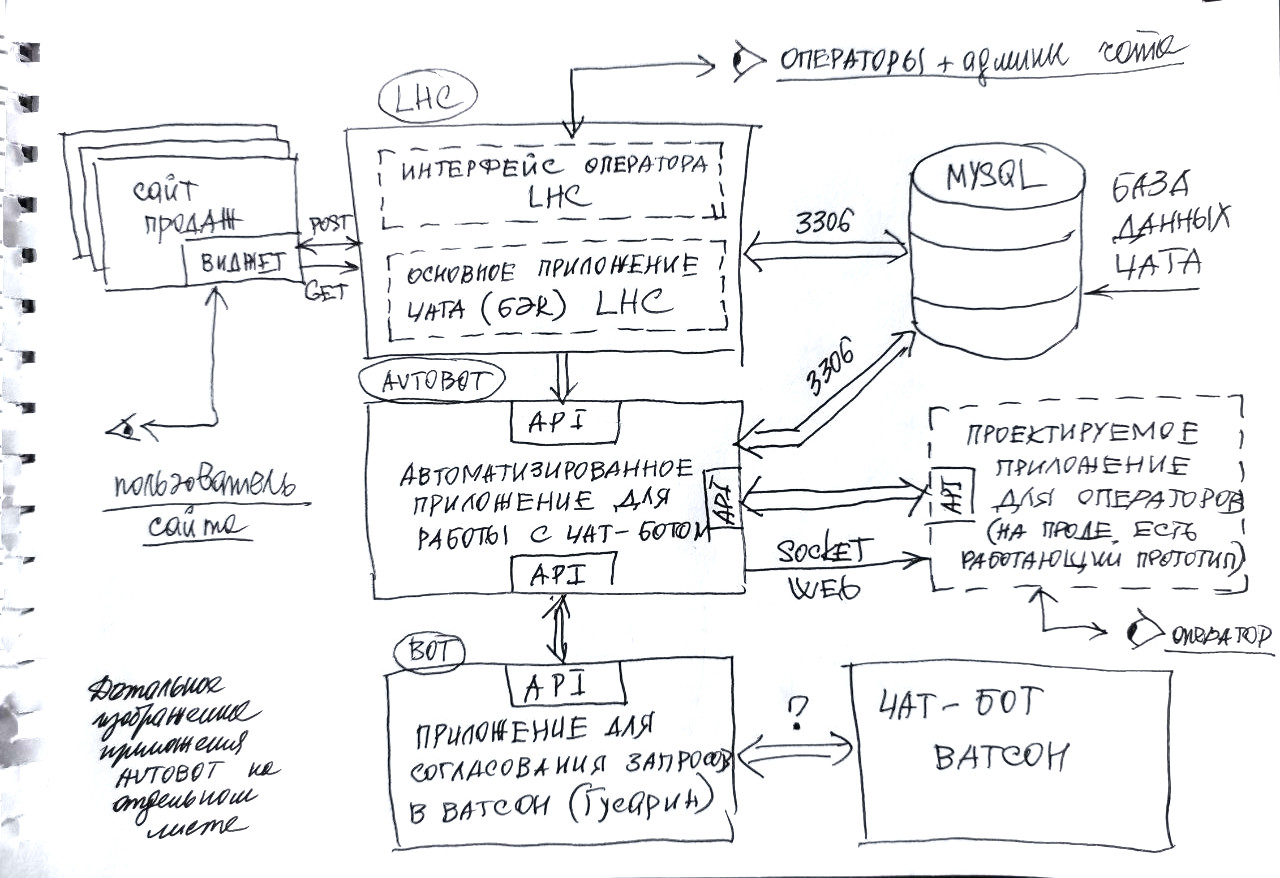 ОПЕРАТОРЫ + админы чата
LHC
ИНТЕРФЕЙС ОПЕРАТОРА
LHC
САЙТ
ПРОДАЖ
ВИДЖЕТ
POST
GET
ОСНОВНОЕ ПРИЛОЖЕНИЕ
ЧАТА (БЭК) LHC
3306
MYSQL
БАЗА
ДАННЫХ
ЧАТА
3306
AVTOBOT
API
АВТОМАТИЗИРОВАННОЕ
ПРИЛОЖЕНИЕ ДЛЯ
РАБОТЫ С ЧАТ-БОТОМ
API
API
SOCKET
WEB
ПРОЕКТИРУЕМОЕ
ПРИЛОЖЕНИЕ
ДЛЯ ОПЕРАТОРОВ
(НА ПРОДЕ ЕСТЬ
РАБОТАЮЩИЙ ПРОТОТИП)
API
ОПЕРАТОР
пользователь
сайта
BOT
API
ПРИЛОЖЕНИЕ ДЛЯ
СОГЛАСОВАНИЯ ЗАПРОСОВ
В ВАТСОН (Гусарин)
?
ЧАТ-БОТ
ВАТСОН
Детальное
изображение
приложения
AVTOBOT на
отдельном
листе